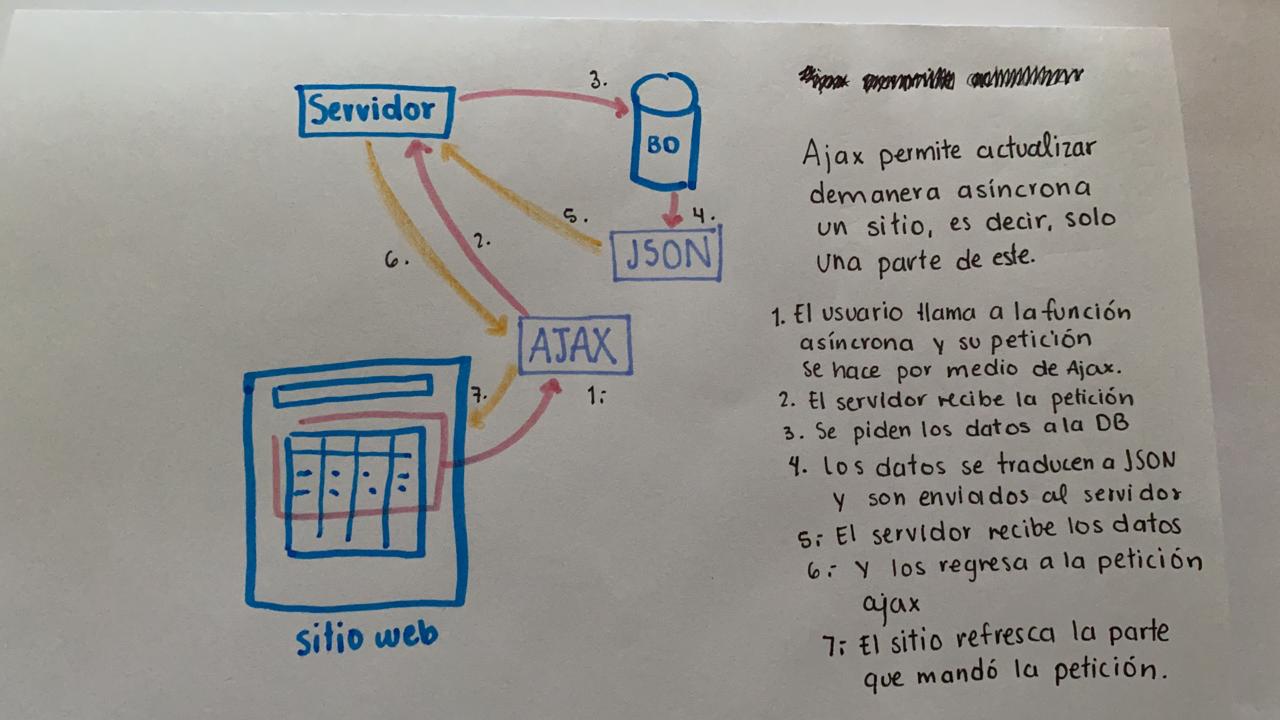 Servidor
3.
BD
4.
5.
JSON
2.
6.
AJAX
7.
1:
sitio web
Ajax permite actualizar
demanera asíncrona
un sitio, es decir, solo
una parte de este.
1. El usuario llama a la función
asíncrona y su petición
se hace por medio de Ajax.
2. El servidor recibe la petición
3. Se piden los datos a la DB
4. Los datos se traducen a JSON
y son enviados al servidor
5: El servidor recibe los datos
6: Y los regresa a la petición
ajax
7: El sitio refresca la parte
que mandó la petición.